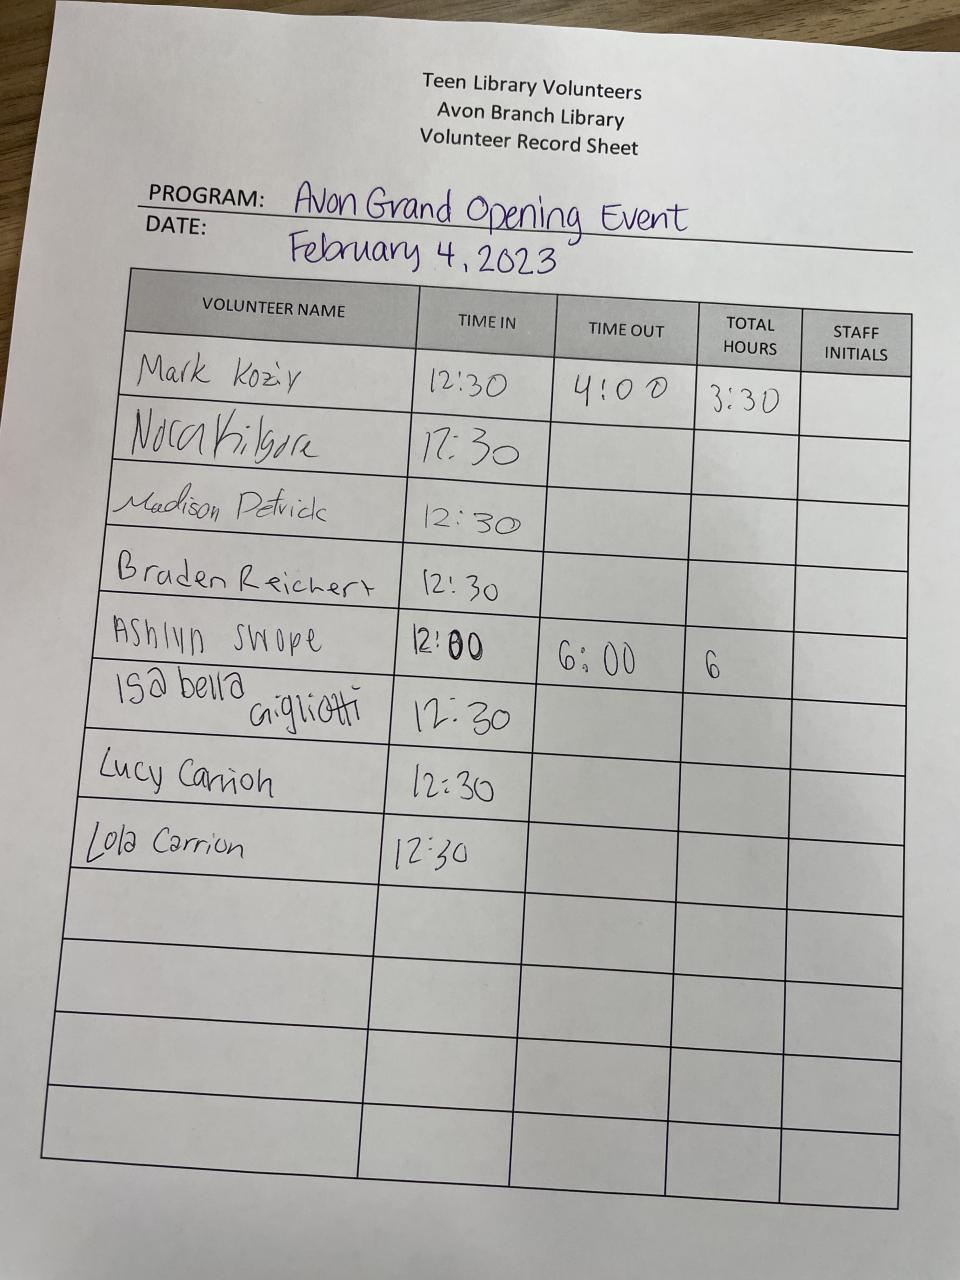 Teen Library Volunteers
Avon Branch Library
Volunteer Record Sheet
PROGRAM: Avon Grand Opening Event
DATE: February 4, 2023
VOLUNTEER NAME TIME IN TIME OUT TOTAL HOURS STAFF INITIALS
Mark Koziy 12:30 4:00 3:30
Nora Kilgore 12:30
Madison Petrick 12:30
Braden Reichert 12:30
Ashlyn Swope 12:00 6:00 6
Isabella Gigliotti 12:30
Lucy Carrion 12:30
Lola Carrion 12:30